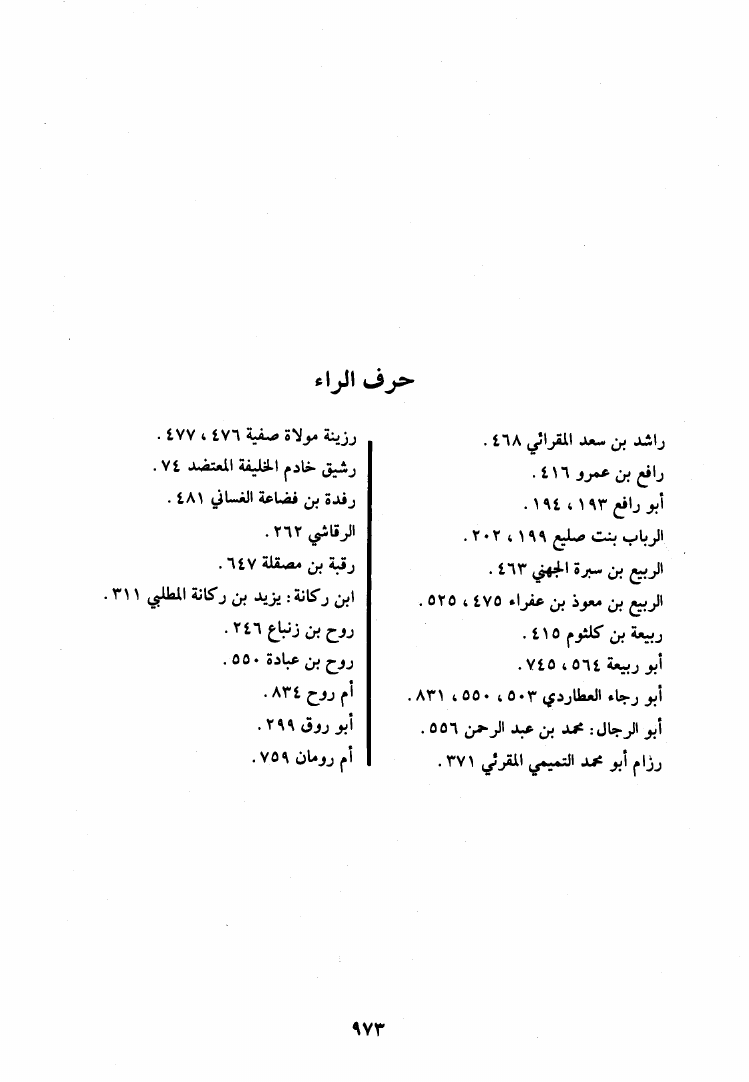 حرف الراء
راشد بن سعد المقرائي ٤٦٨ .
رافع بن عمرو ٤١٦ .
أبو رافع ١٩٣ ، ١٩٤ .
الرباب بنت صليع ١٩٩ ، ٢٠٢ .
الربيع بن سبرة الجهني ٤٦٣ .
الربيع بن معوذ بن عفراء ٤٧٥ ، ٥٢٥ .
ربيعة بن كلثوم ٤١٥ .
أبو ربيعة ٥٦٤ ، ٧٤٥ .
أبو رجاء العطاردي ٥٠٣ ، ٥٥٠ ، ٨٣١ .
أبو الرجال : محمد بن عبد الرحمن ٥٥٦ .
رزام أبو محمد التميمي المقرئي ٣٧١ .
رزينة مولاة صفية ٤٧٦ ، ٤٧٧ .
رشيق خادم الخليفة المعتضد ٧٤ .
رفدة بن فضاعة الغساني ٤٨١ .
الرقاشي ٢٦٢ .
رقبة بن مصقلة ٦٤٧ .
ابن ركانة : يزيد بن ركانة المطلبي ٣١١ .
روح بن زنباع ٢٤٦ .
روح بن عبادة ٥٥٠ .
أم روح ٨٣٤ .
أبو روق ٢٩٩ .
أم رومان ٧٥٩ .
٩٧٣